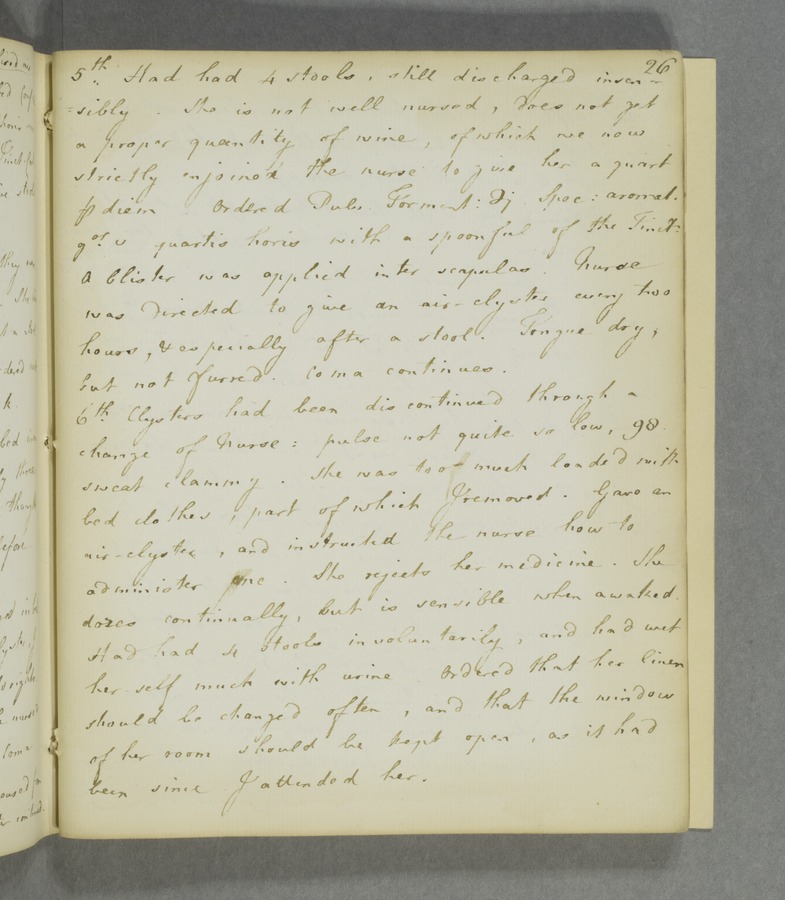 26
5th. Had had 4 stools, still discharged insen-
=sibly. She is not well nursed, does not get
a proper quantity of wine, of which we now
strictly enjoined the nurse to give her a quart
℔ diem. Ordered Pulv. Torment: Ʒj Spec: aromat.
quartis horis with a spoonful of the Tinct:
A blister was applied inter scapulas. Nurse
was directed to give an air-clyster every two
hours, & especially after a stool. Tongue dry,
but not furred. Coma continues.
6th. Clysters had been discontinued through a
change of Nurse: pulse not quite so low, 98.
sweat clammy. She was too much loaded with
bed clothes, part of which I removed. Gave an
air-clyster, and instructed the nurse how to
administer one. She rejects her medicine. She
dozes continually, but is sensible when awaked.
Had had 4 stools involuntarily, and had wet
her self much with urine. Ordered that her linen
should be changed often, and that the window
of her room should be kept open, as it had
been since I attended her.